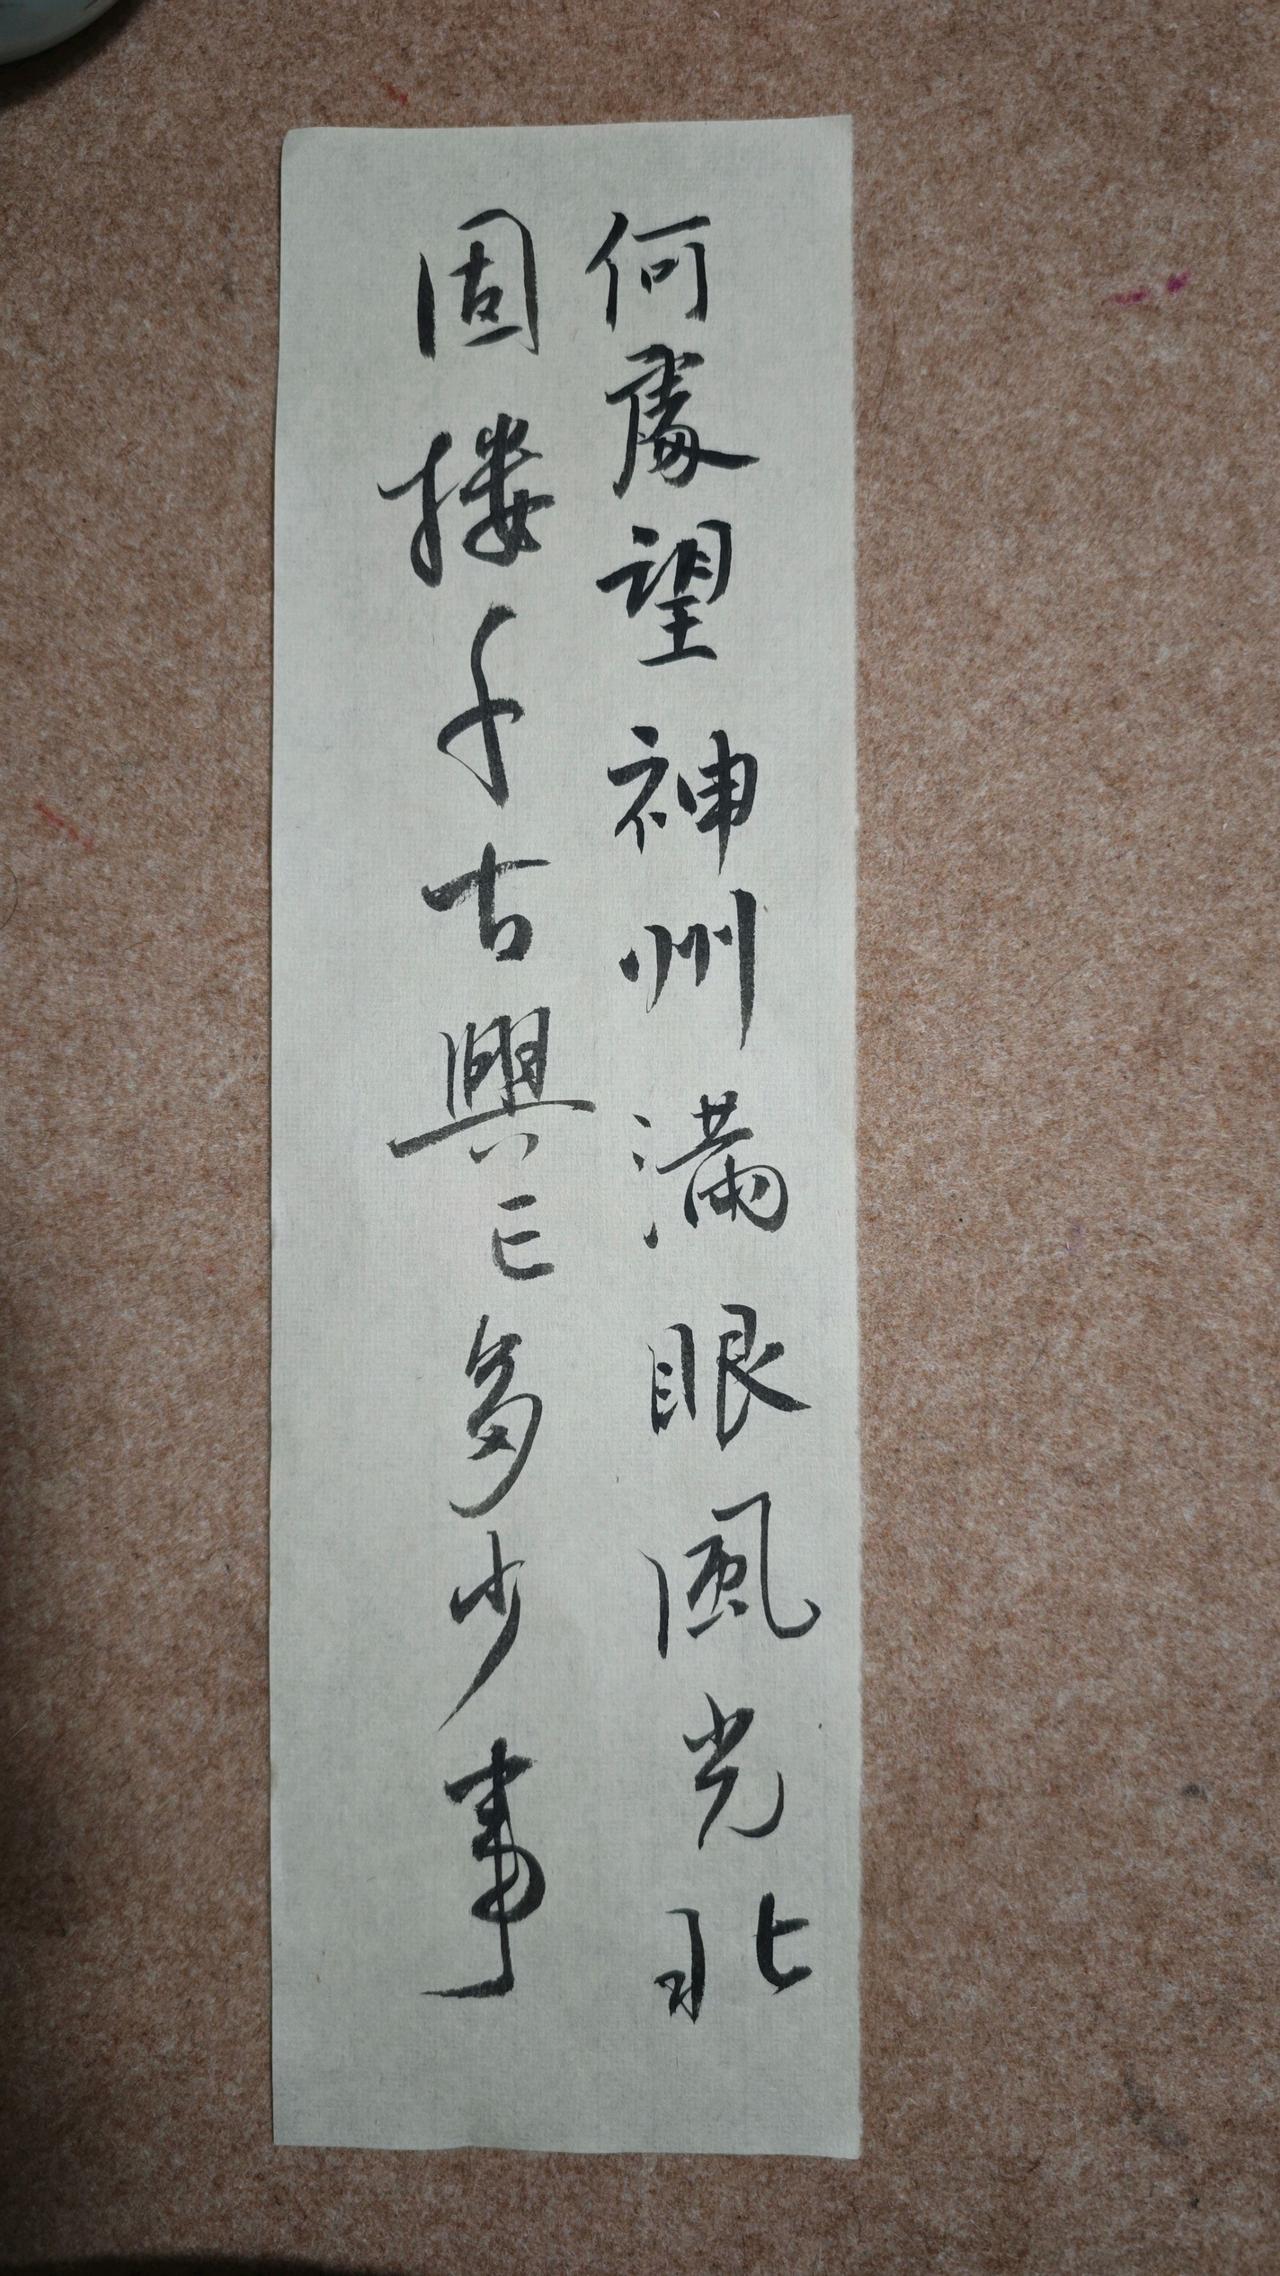 何處望神州滿眼風光北
固樓千古興亡多少事